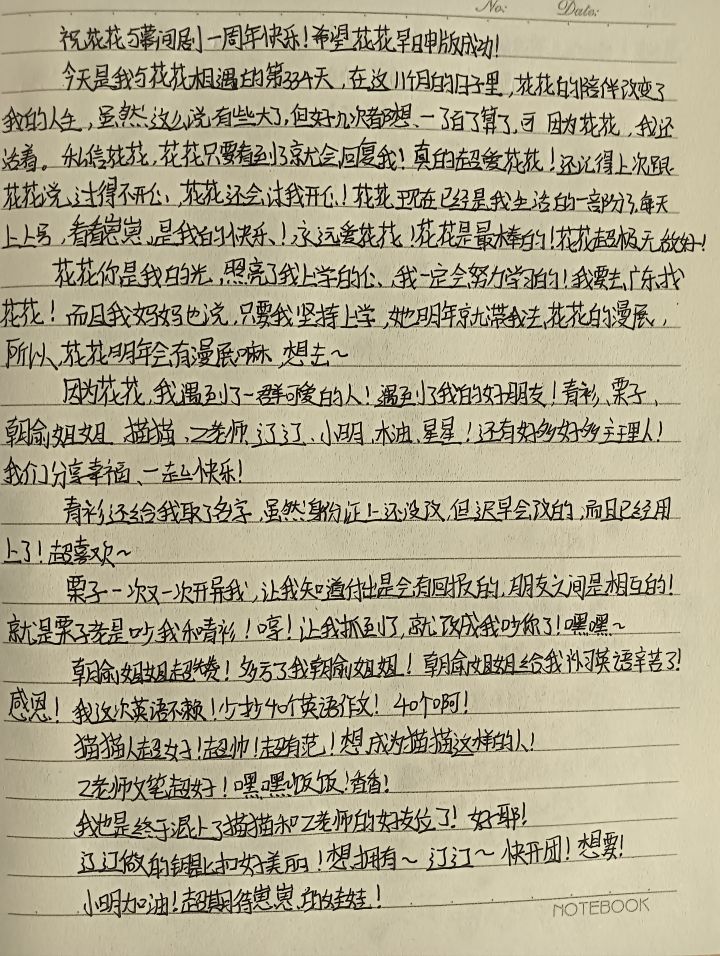 No: Date:
祝花花与幕间剧一周年快乐！希望花花早日申版成功！
今天是我与花花相遇的第334天，在这11个月的日子里，花花的陪伴改变了
我的人生，虽然这么说有些大了，但好几次都想一了百了算了，可因为花花，我还
活着。私信花花，花花只要看到了就会回复我！真的超爱花花！还记得上次跟
花花说过得不开心，花花还会讨我开心！花花现在已经是我生活的一部分了，每天
上上号，看看崽崽，是我的快乐！永远爱花花！花花是最棒的！花花超极无敌好！
花花你是我的光，照亮了我上学的心，我一定会努力学习的！我要去广东找
花花！而且我妈妈也说，只要我坚持上学，她明年就带我去花花的漫展，
所以，花花明年会有漫展嘛，想去~
因为花花，我遇到了一群可爱的人！遇到了我的好朋友！青衫、栗子、
朝俞姐姐、猫猫、Z老师、辽辽、小明、木油、星星！还有好多好多主理人！
我们分享幸福、一起快乐！
青衫还给我取了名字，虽然身份证上还没改，但迟早会改的，而且已经用
上了！超喜欢~
栗子一次又一次开导我，让我知道付出是会有回报的，朋友之间是相互的！
就是栗子老是吵我和青衫！哼！让我抓到了，就改成我吵你了！嘿嘿~
朝俞姐姐超赞！多亏了我朝俞姐姐！朝俞姐姐给我补习英语辛苦了！
感恩！我这次英语不赖！少抄40个英语作文！40个啊！
猫猫人超好！超帅！超有范！想成为猫猫这样的人！
Z老师文笔超好！嘿嘿饭饭！香香！
我也是终于混上了猫猫和Z老师的好友位了！好耶！
辽辽做的钥匙扣好美丽！想拥有~辽辽~快开团！想要！
小明加油！超期待崽崽的娃娃！
NOTEBOOK